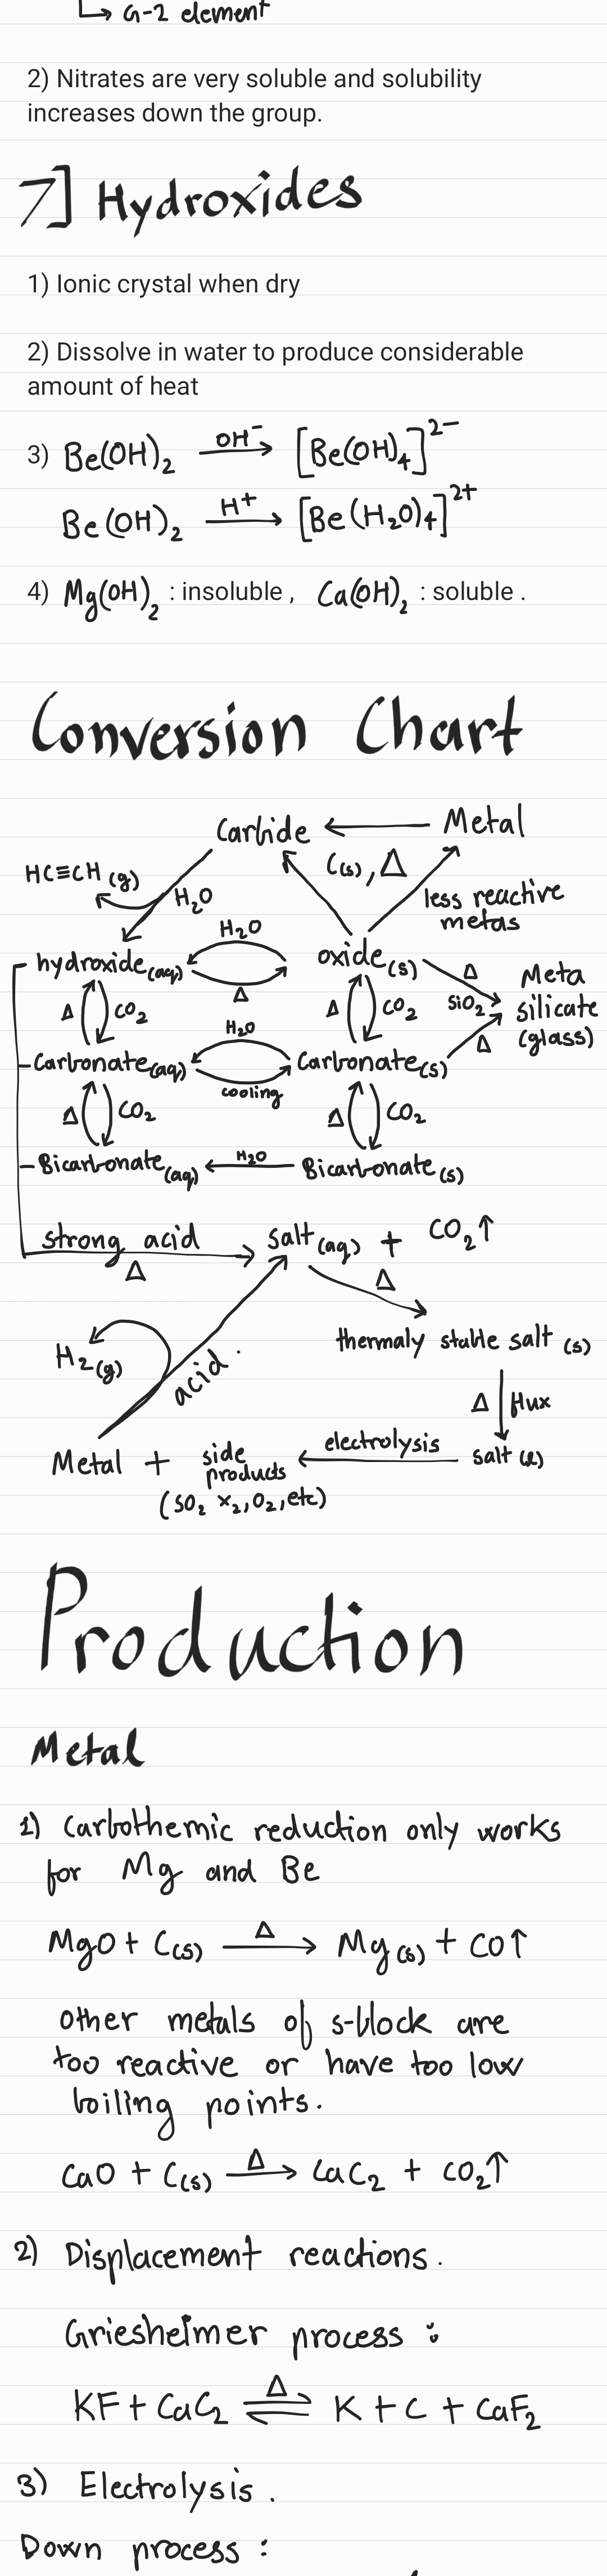 ↳ G-2 element
2) Nitrates are very soluble and solubility
increases down the group.
7] Hydroxides
1) Ionic crystal when dry
2) Dissolve in water to produce considerable
amount of heat
3) Be(OH)₂ —OH⁻→ [Be(OH)₄]²⁻
Be(OH)₂ —H⁺→ [Be(H₂O)₄]²⁺
4) Mg(OH)₂ : insoluble , Ca(OH)₂ : soluble .
Conversion Chart
Carbide ← Metal
C(s), Δ
HC≡CH (g)
H₂O
less reactive
metas
H₂O
hydroxide(aq) oxide(s)
Δ
Δ
SiO₂
Meta
silicate
(glass)
Δ CO₂ Δ CO₂
H₂O
Δ
Carbonate(aq) Carbonate(s)
cooling
Δ CO₂ Δ CO₂
Bicarbonate(aq) ←H₂O— Bicarbonate(s)
strong acid
Δ
salt(aq) + CO₂↑
Δ
thermaly stable salt (s)
H₂(g)
acid.
Δ flux
Metal + side
products
←electrolysis— salt (l)
(SO₂ x₂, O₂, etc)
Production
Metal
1) Carbothemic reduction only works
for Mg and Be
MgO + C(s) —Δ→ Mg(s) + CO↑
other metals of s-block are
too reactive or have too low
boiling points.
CaO + C(s) —Δ→ CaC₂ + CO₂↑
2) Displacement reactions.
Griesheimer process :
KF + CaC₂ ⇌Δ K + C + CaF₂
3) Electrolysis.
Down process :